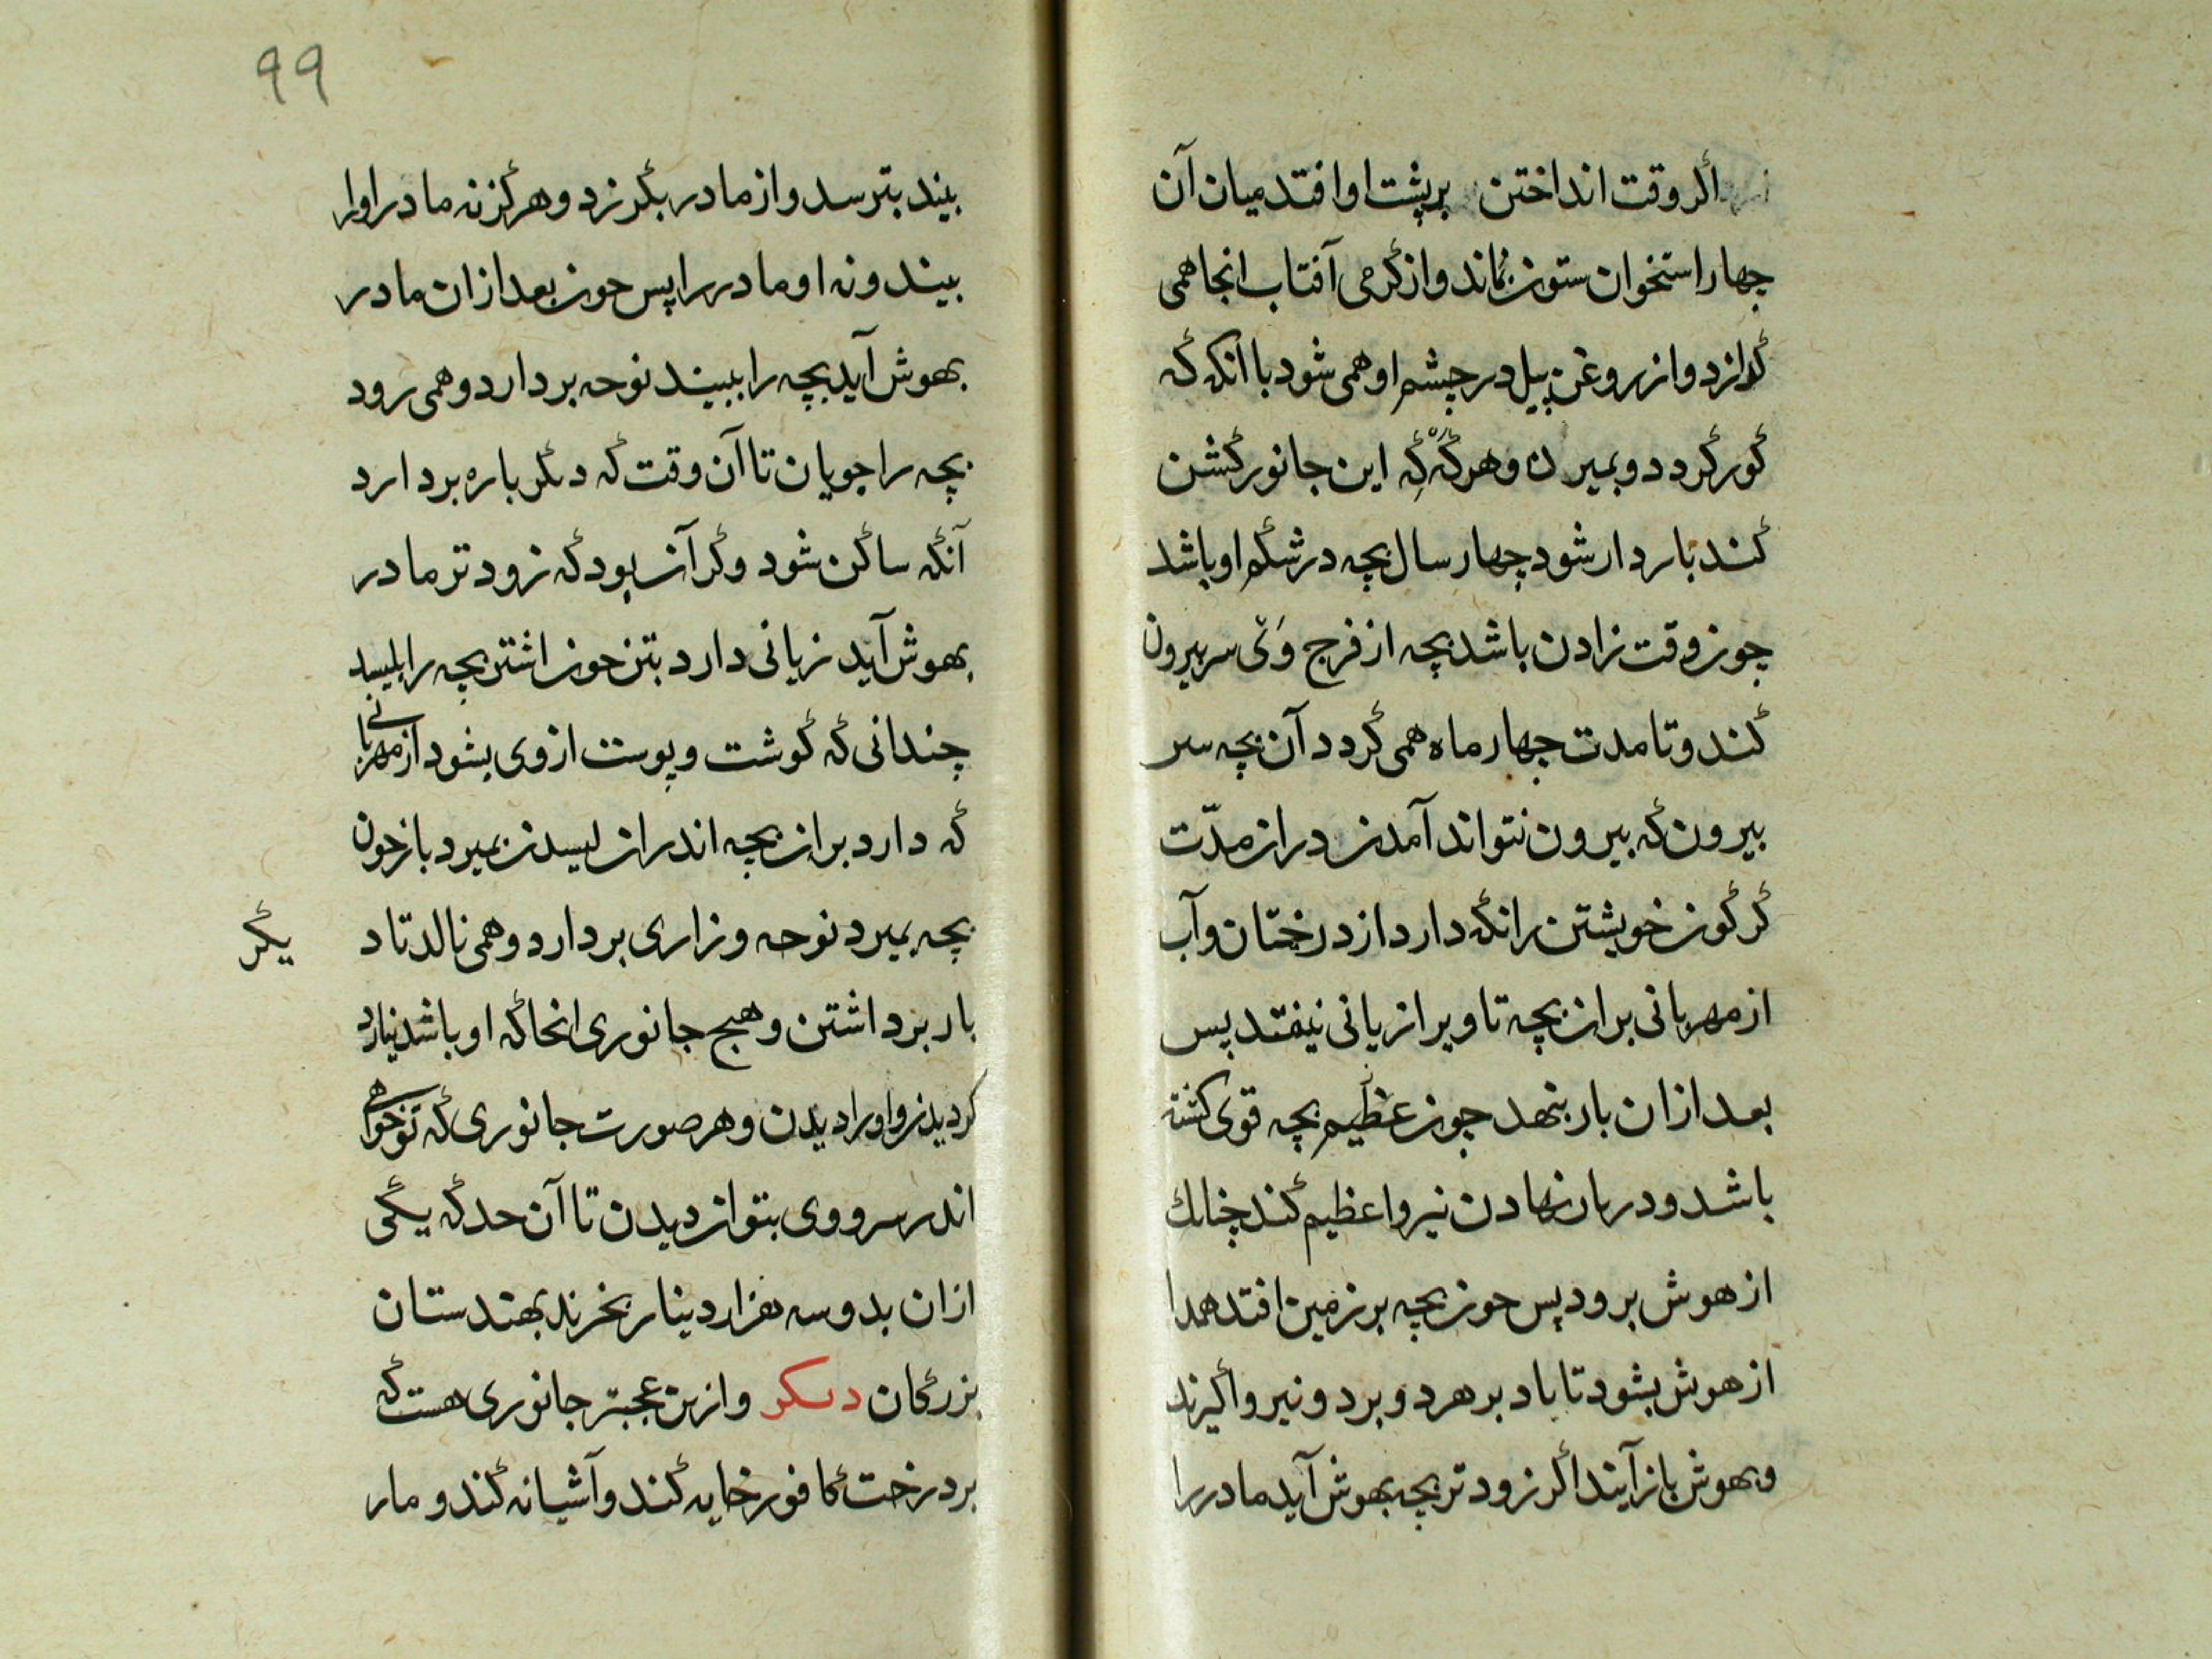 اگر وقت انداختن بر پشت او افتد میان آن
چهار استخوان ستون بماند و از گرمی آفتاب انجا همی
گدازد و از روغن پیل در چشم او همی شود با آنکه که
کور گردد و بمیرد وهرگه که این جانور کشن
کند باردار شود چهار سال بچه در شکم او باشد
چون وقت زادن باشد بچه از فرج وی سر بیرون
کند و تا مدت چهار ماه همی گردد آن بچه سر
بیرون که بیرون نتواند آمدن دران مدّت
کرگون خویشتن را نگه دارد از درختان و آب
از مهربانی بران بچه تا ویرا زیانی نیفتد پس
بعد ازان بار بنهد چون عظیم بچه قوی گشته
باشد و در بار نهادن نیروا عظیم کند چنانک
از هوش برود پس چون بچه بر زمین افتد همدا
از هوش بشود تا باد بر هر دو برد و نیرو گیرند
و بهوش باز آیند اگر زودتر بچه بهوش آید مادر را
۹۹
بیند بترسد و از مادر بگریزد و هرگز نه مادر او را
بیند و نه او مادر را پس چون بعد ازان مادر
بهوش آید بچه را ببیند نوحه بردارد و همی رود
بچه را جویان تا آن وقت که دیگر باره بردارد
آنگه ساکن شود وگر آن بود که زودتر مادر
بهوش آید زبانی دارد بتن چون اشتر بچه را بلیسد
چندانی که گوشت و پوست از وی بشود از مهربانی
که دارد بران بچه اندران لیسدن بمیرد باز چون
بچه بمیرد نوحه و زاری بردارد و همی نالد تا د
یگر
بار برداشتن و هیچ جانوری انجا که او باشد نیارد
گردیدن و او را دیدن و هر صورت جانوری که تو خواهی
اندر سرو وی بتوان دیدن تا آن حد که یکی
ازان بدو سه هزار دینار بخرند بهندستان
بزرگان دیگر و ازین عجبتر جانوری هست که
بر درخت کافور خایه کند و آشیانه کند و مار